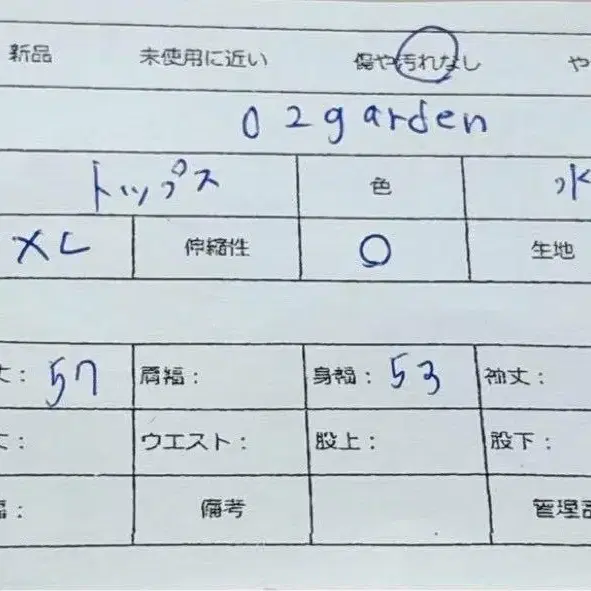 新品 未使用に近い 傷や汚れなし や
02garden
トップス 色 水
XL 伸縮性 〇 生地
丈： 57 肩幅： 身幅： 53 袖丈：
丈： ウエスト： 股上： 股下：
幅： 備考 管理